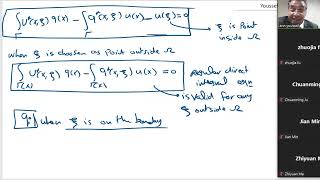 Youssef
∫ U*(x,ξ) q(x) - ∫ q*(x,ξ) u(x) - u(ξ) = 0
ξ is point inside Ω
when ξ is chosen as point outside Ω
∫ U*(x,ξ) q(x) - ∫ q*(x,ξ) u(x) = 0
Γ(x) Γ(x)
regular direct integral eqn is valid for any ξ outside Ω
when ξ is on the boundary
zhuojia fu
zhuojia fu
Chuanming Ju
Chuanming Ju
Jian Min
Jian Min
Zhiyuan M
Zhiyuan Ma